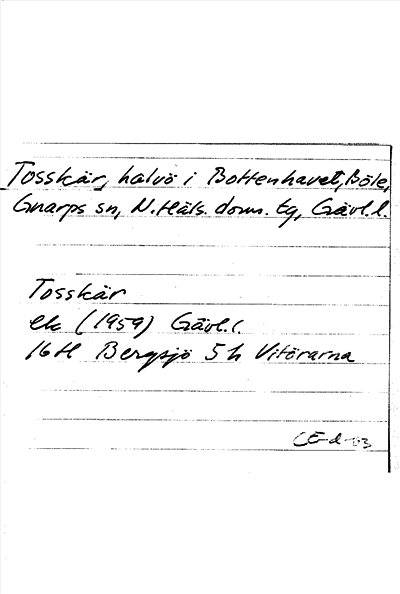 Tosskär, halvö i Bottenhavet, Böle,
Gnarps sn, N. Häls. doms. tg, Gävl. l.
Tosskär
ek (1959) Gävl. l.
16H Bergsjö 5h Vitörarna